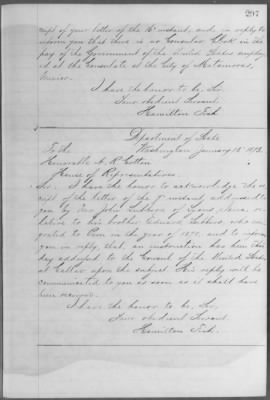 297
ceipt of your letter of the 16th instant, and in reply to
inform you that there is no Consular Clerk in the
pay of the Government of the United States employ-
ed at the Consulate at the City of Matamoros,
Mexico.
I have the honor to be, Sir
Your obedient Servant
Hamilton Fish
Department of State
To the Washington January 18, 1873.
Honorable A. R. Cotton
House of Representatives.
Sir: I have the honor to acknowledge the re-
ceipt of the letter of the instant addressed to
you by Mr John of Iowa, re-
lative to his brother who em-
igrated to Peru in the year of 1870, and to inform
you in reply, that an instruction has been this
day addressed to the Consul of the United States
at Callao upon the subject. His reply will be
communicated to you as soon as it shall have
been received.
I have the honor to be, Sir,
Your obedient Servant
Hamilton Fish.